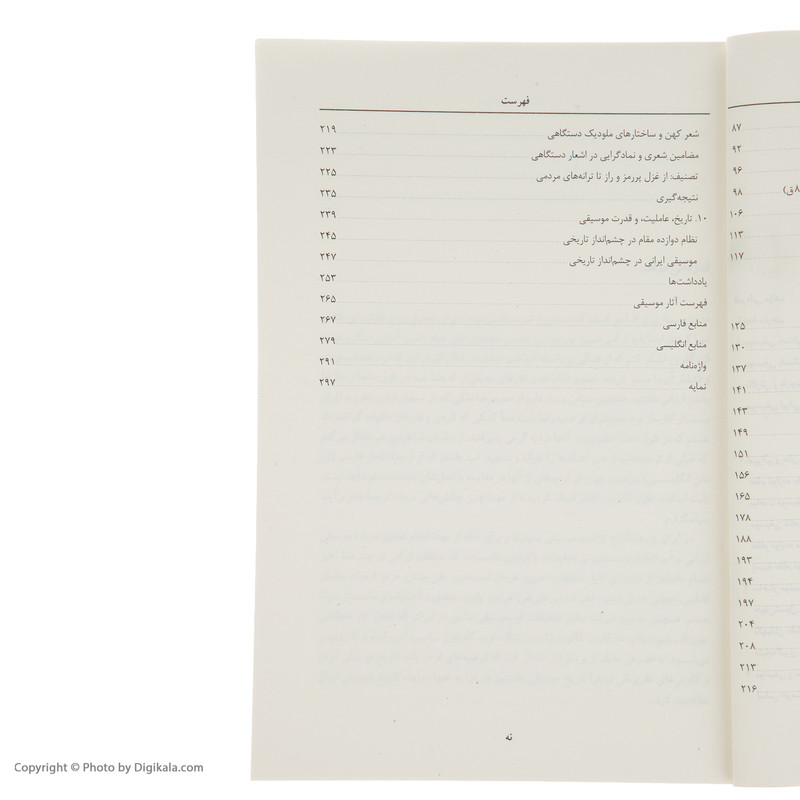 ۸۷
۹۲
۹۶
۸ق) ۹۸
۱۰۶
۱۱۳
۱۱۷
۱۲۵
۱۳۰
۱۳۷
۱۴۱
۱۴۳
۱۴۹
۱۵۱
۱۵۶
۱۶۵
۱۷۸
۱۸۸
۱۹۳
۱۹۴
۱۹۷
۲۰۴
۲۰۸
۲۱۳
۲۱۶
فهرست
شعر کهن و ساختارهای ملودیک دستگاهی ۲۱۹
مضامین شعری و نمادگرایی در اشعار دستگاهی ۲۲۳
تصنیف: از غزل پررمز و راز تا ترانه‌های مردمی ۲۲۵
نتیجه‌گیری ۲۳۵
۱۰. تاریخ، عاملیت، و قدرت موسیقی ۲۳۹
نظام دوازده مقام در چشم‌انداز تاریخی ۲۴۵
موسیقی ایرانی در چشم‌انداز تاریخی ۲۴۷
یادداشت‌ها ۲۵۳
فهرست آثار موسیقی ۲۶۵
منابع فارسی ۲۶۷
منابع انگلیسی ۲۷۹
واژه‌نامه ۲۹۱
نمایه ۲۹۷
نه
Copyright © Photo by Digikala.com